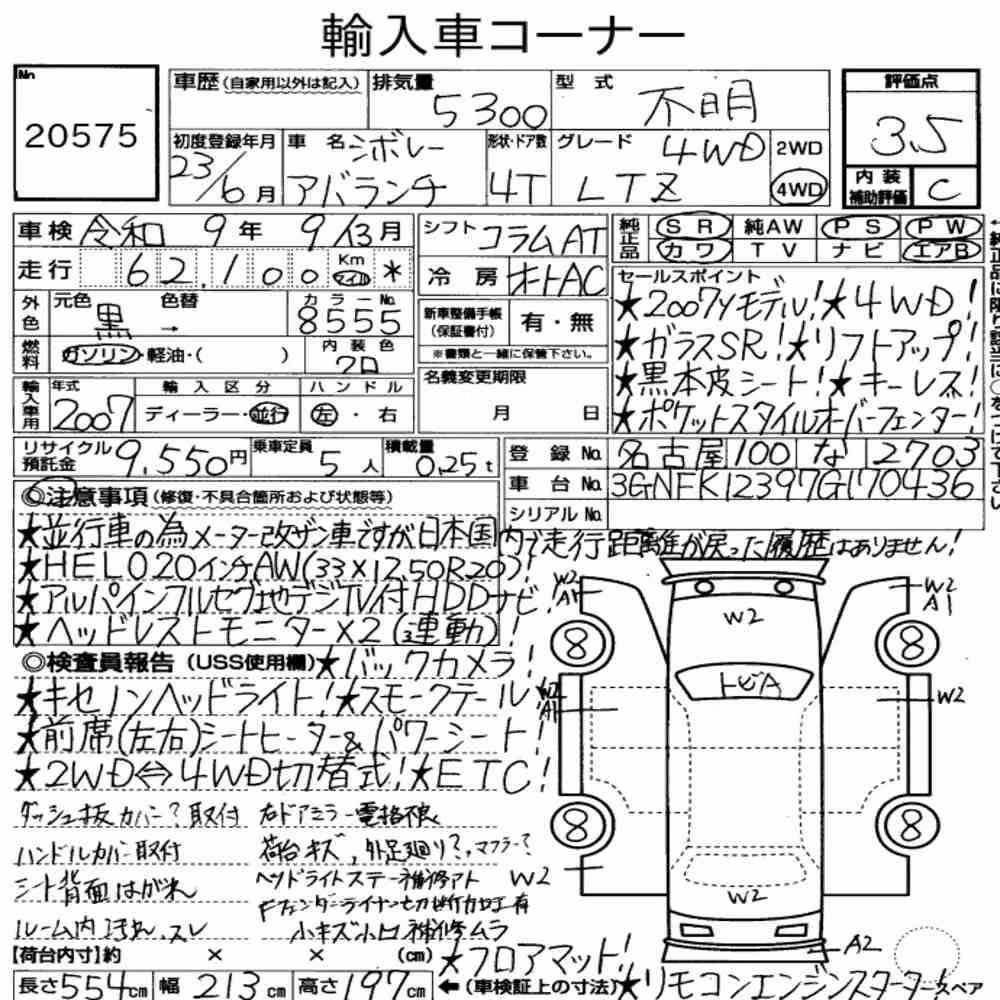 輸入車コーナー
No
20575
車歴(自家用以外は記入) 排気量 5300 型式 不明
初度登録年月 23/6月 車名 シボレー アバランチ 形状・ドア数 4T グレード 4WD LTZ 2WD 4WD
評価点
3.5
内装補助評価 C
車検 令和 9年 9/13月
走行 62,100 Km マイル *
外色 元色 黒 色替 → カラーNo. 8555
燃料 ガソリン・軽油・( ) 内装色 クロ
輸入車用 年式 2007 輸入区分 ディーラー・並行 ハンドル 左・右
シフト コラムAT
冷房 オートAC
新車整備手帳(保証書付) 有・無
※書類と一緒に保管下さい。
名義変更期限
月 日
純正品 SR 純AW PS PW
カワ TV ナビ エアB
セールスポイント
★2007Yモデル!★4WD!
★ガラスSR!★リフトアップ!
★黒本皮シート!★キーレス!
★ポケットスタイルオーバーフェンダー!
リサイクル預託金 9,550円 乗車定員 5人 積載量 0.25t
登録No. 名古屋 100 な 2703
車台No. 3GNFK12397G170436
シリアルNo.
◎注意事項(修復・不具合箇所および状態等)
★並行車の為メーター改ザン車ですが日本国内で走行距離が戻った履歴はありません!
★HELO20インチAW(33×12.50R20)
★アルパインフルセグ地デジTV付HDDナビ!
★ヘッドレストモニター×2(連動)!
◎検査員報告(USS使用欄)★バックカメラ!
★キセノンヘッドライト!★スモークテール!
★前席(左右)シートヒーター&パワーシート!
★2WD⇔4WD切替式!★ETC!
ダッシュ板カバー?取付 右ドアミラー電格不良
ハンドルカバー取付 荷台キズ、外足廻り?、マフラー?
シート背面はがれ ヘッドライトステー補修アト
Fフェンダーライナー切断加工有
ルーム内汚れ、スレ 小キズ小凹補修ムラ
W2
A1
W2
W2
A1
8
8
W2
A1
W2
8
8
W2
W2
A2
【荷台内寸】約 × × (cm) ★フロアマット!
長さ554cm 幅213cm 高さ197cm ←(車検証上の寸法)★リモコンエンジンスターター
スペア